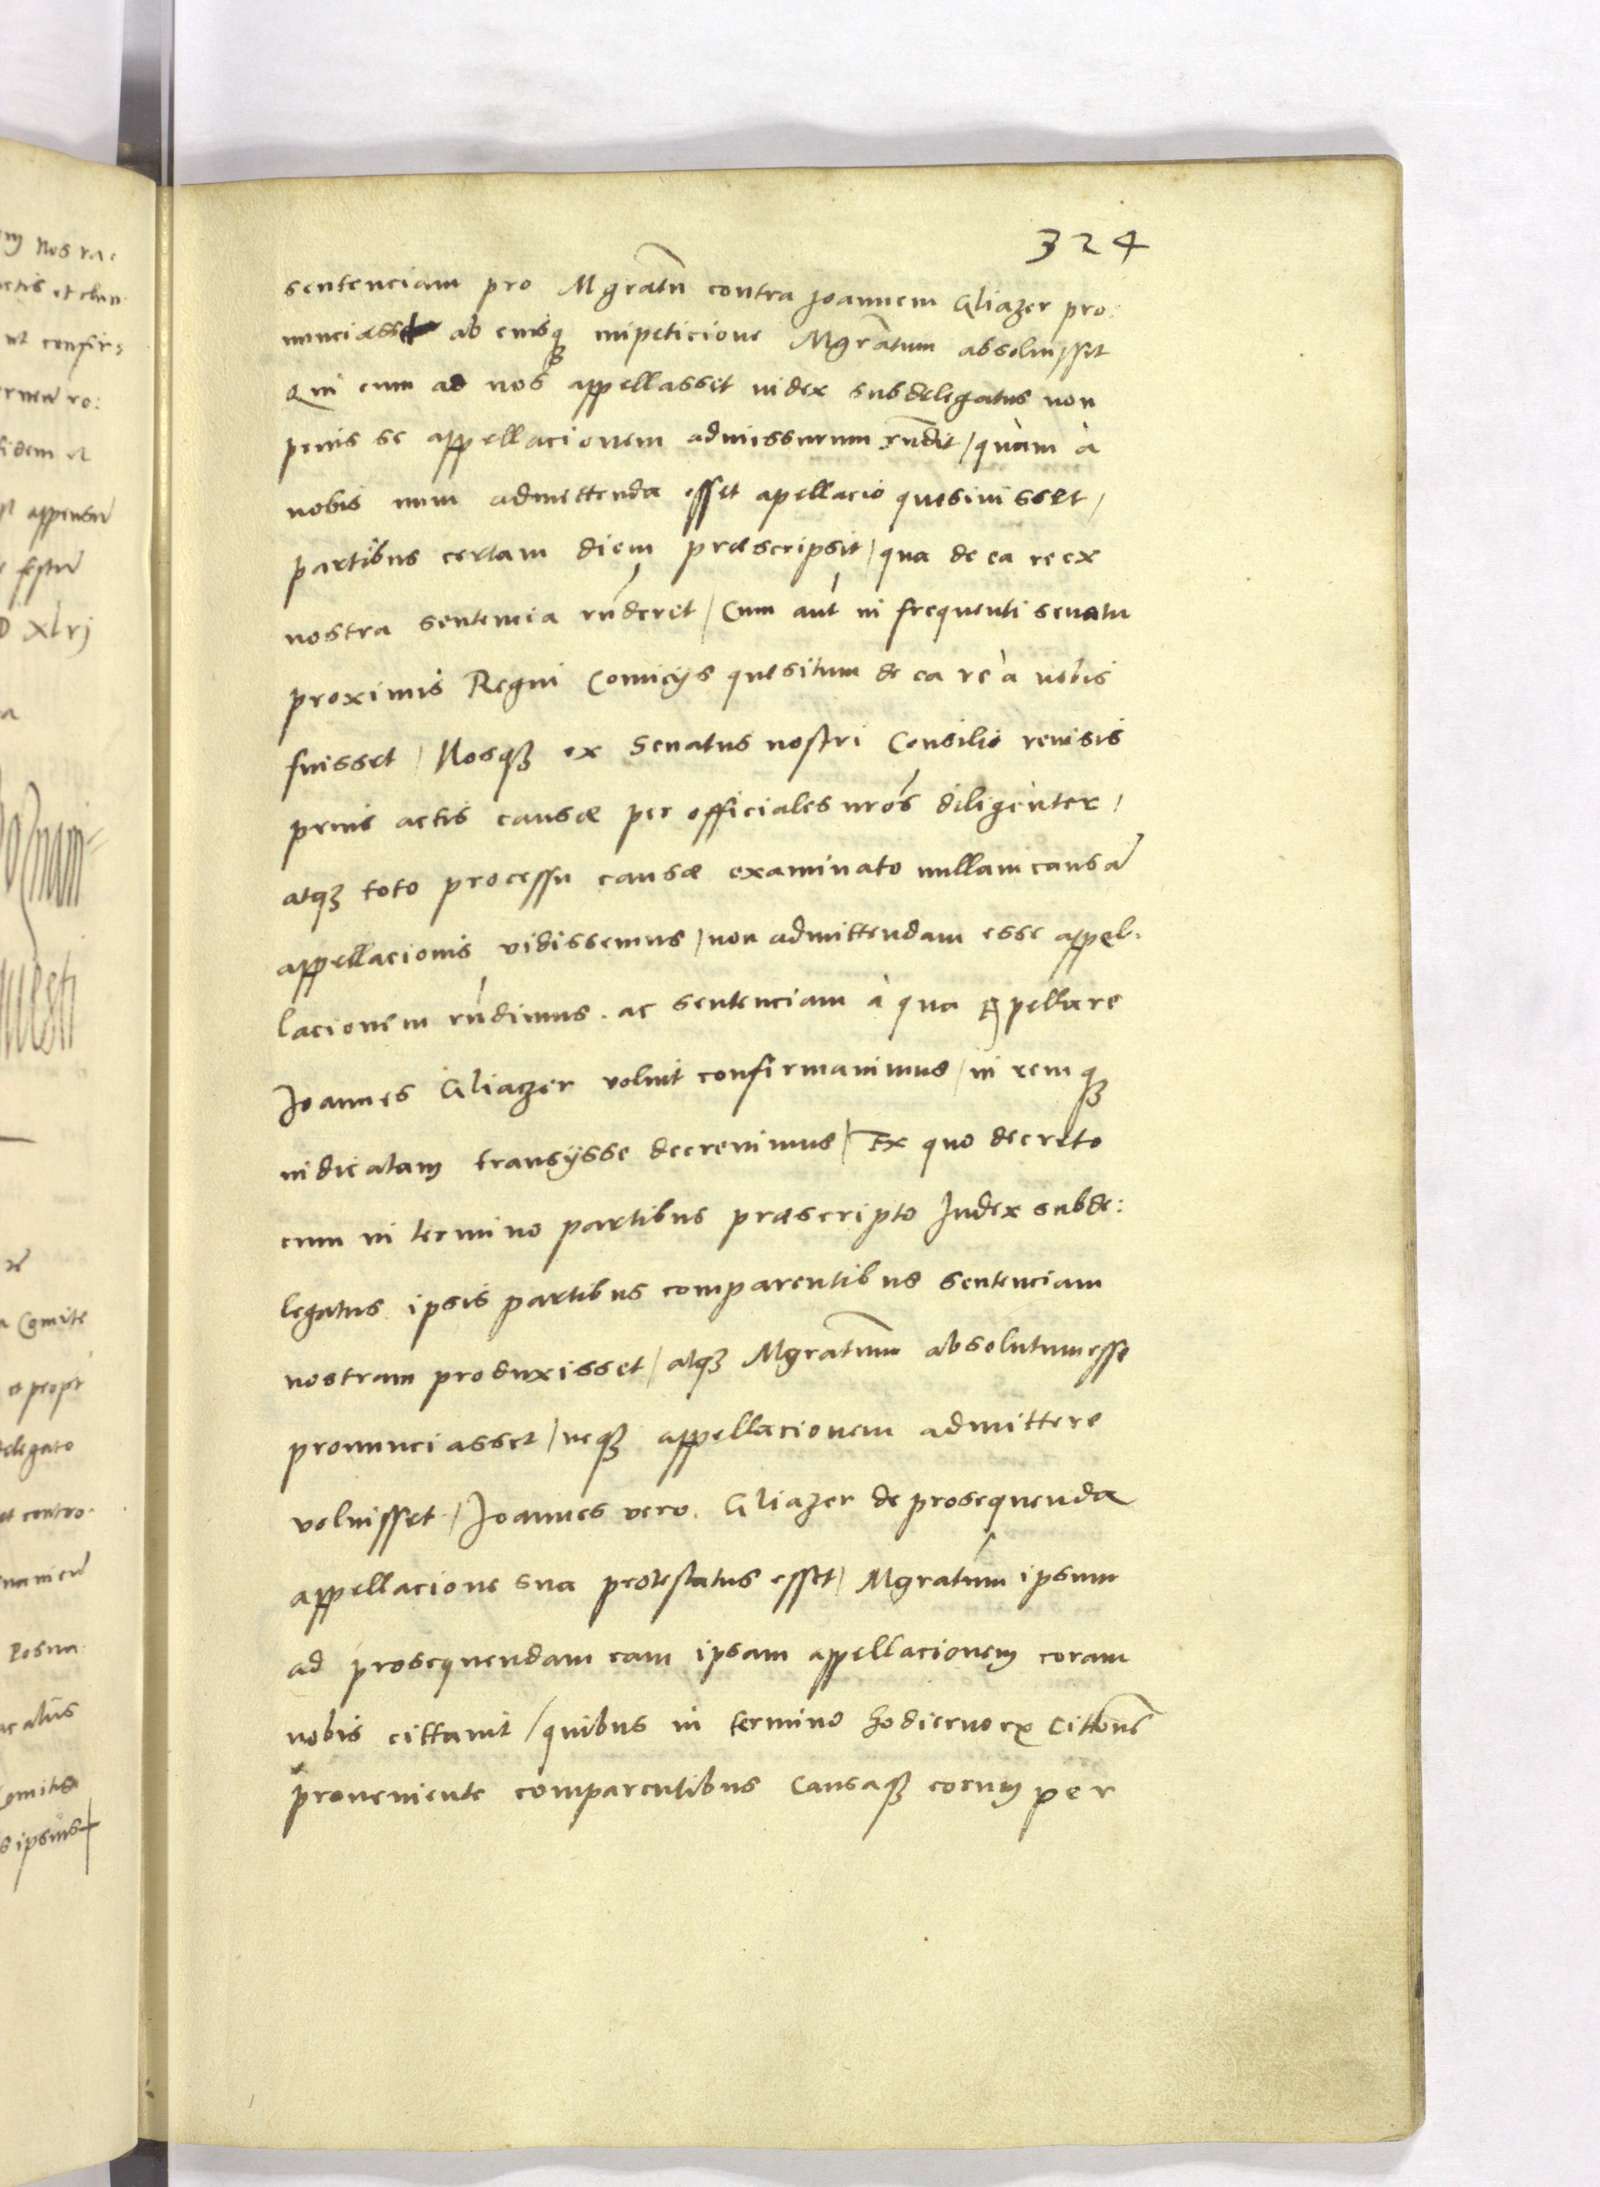 324
sentenciam pro Mgratũ contra Joannem Gliazer pro:
nunciasset ab eiusq3 impeticione Mgrãtum absoluisset
Qui cum ad nos appellasset iudex subdelegatus non
prius se appellacionem admissurum rñdit / quàm à
nobis num admittenda esset apellacio quesiuisset /
partibus certam diem præscripsit / qua de ea re ex
nostra sentencia rñderet / Cum aut in frequenti senatu
proximis Regni Comicijs quesitum de ea re a nobis
fuisset / Nosq3 ex Senatus nostri Consilio reuisis
prius actis causæ per officiales nrõs diligenter /
atq3 toto processu causæ examinato nullam causã
appellacionis vidissemus / non admittendam esse appel-
lacionem rñdimus . ac sentenciam à qua appellare
Joannes Gliazer voluit confirmauimus / in remq3
iudicatam transijsse decreuimus / Ex quo decreto
cum in termino partibus præscripto Judex subde:
legatus ipsis partibus comparentibus sentenciam
nostram produxisset / atq3 Mgratũm absolutum esse
pronunciasset / neq3 appellacionem admittere
voluisset / Joannes vero . Gliazer de prosequenda
appellacione sua protestatus esset / Mgratum ipsum
ad prosequendam eam ipsam appellacionem coram
nobis cittauit / quibus in termino hodierno ex Cittone
proueniente comparentibus Causaq3 eorum per